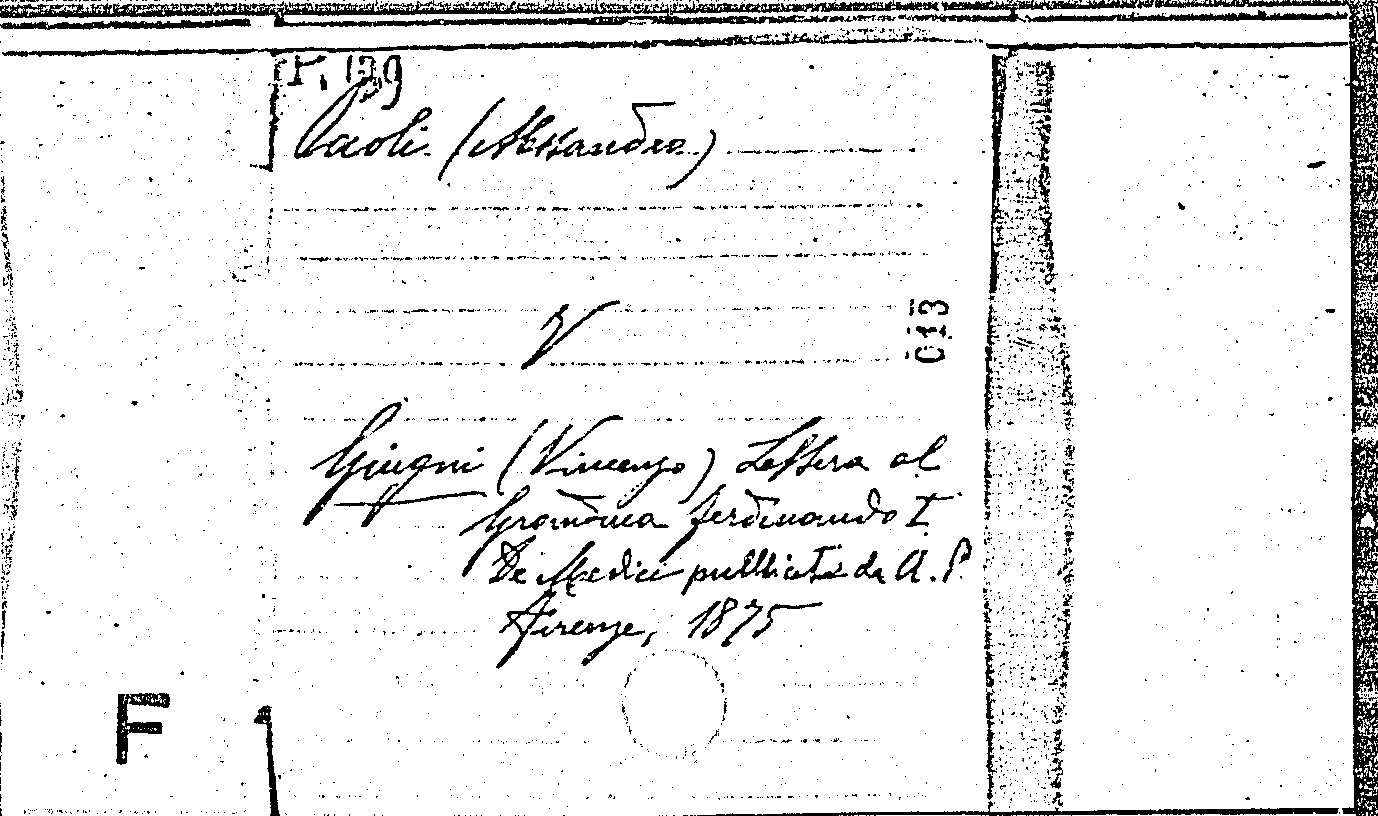 P. 139
Paoli (Alessandro)
V
013
Giugni (Vincenzo) Lettera al
Granduca Ferdinando I
De Medici pubblicata da A. P.
Firenze, 1875
F